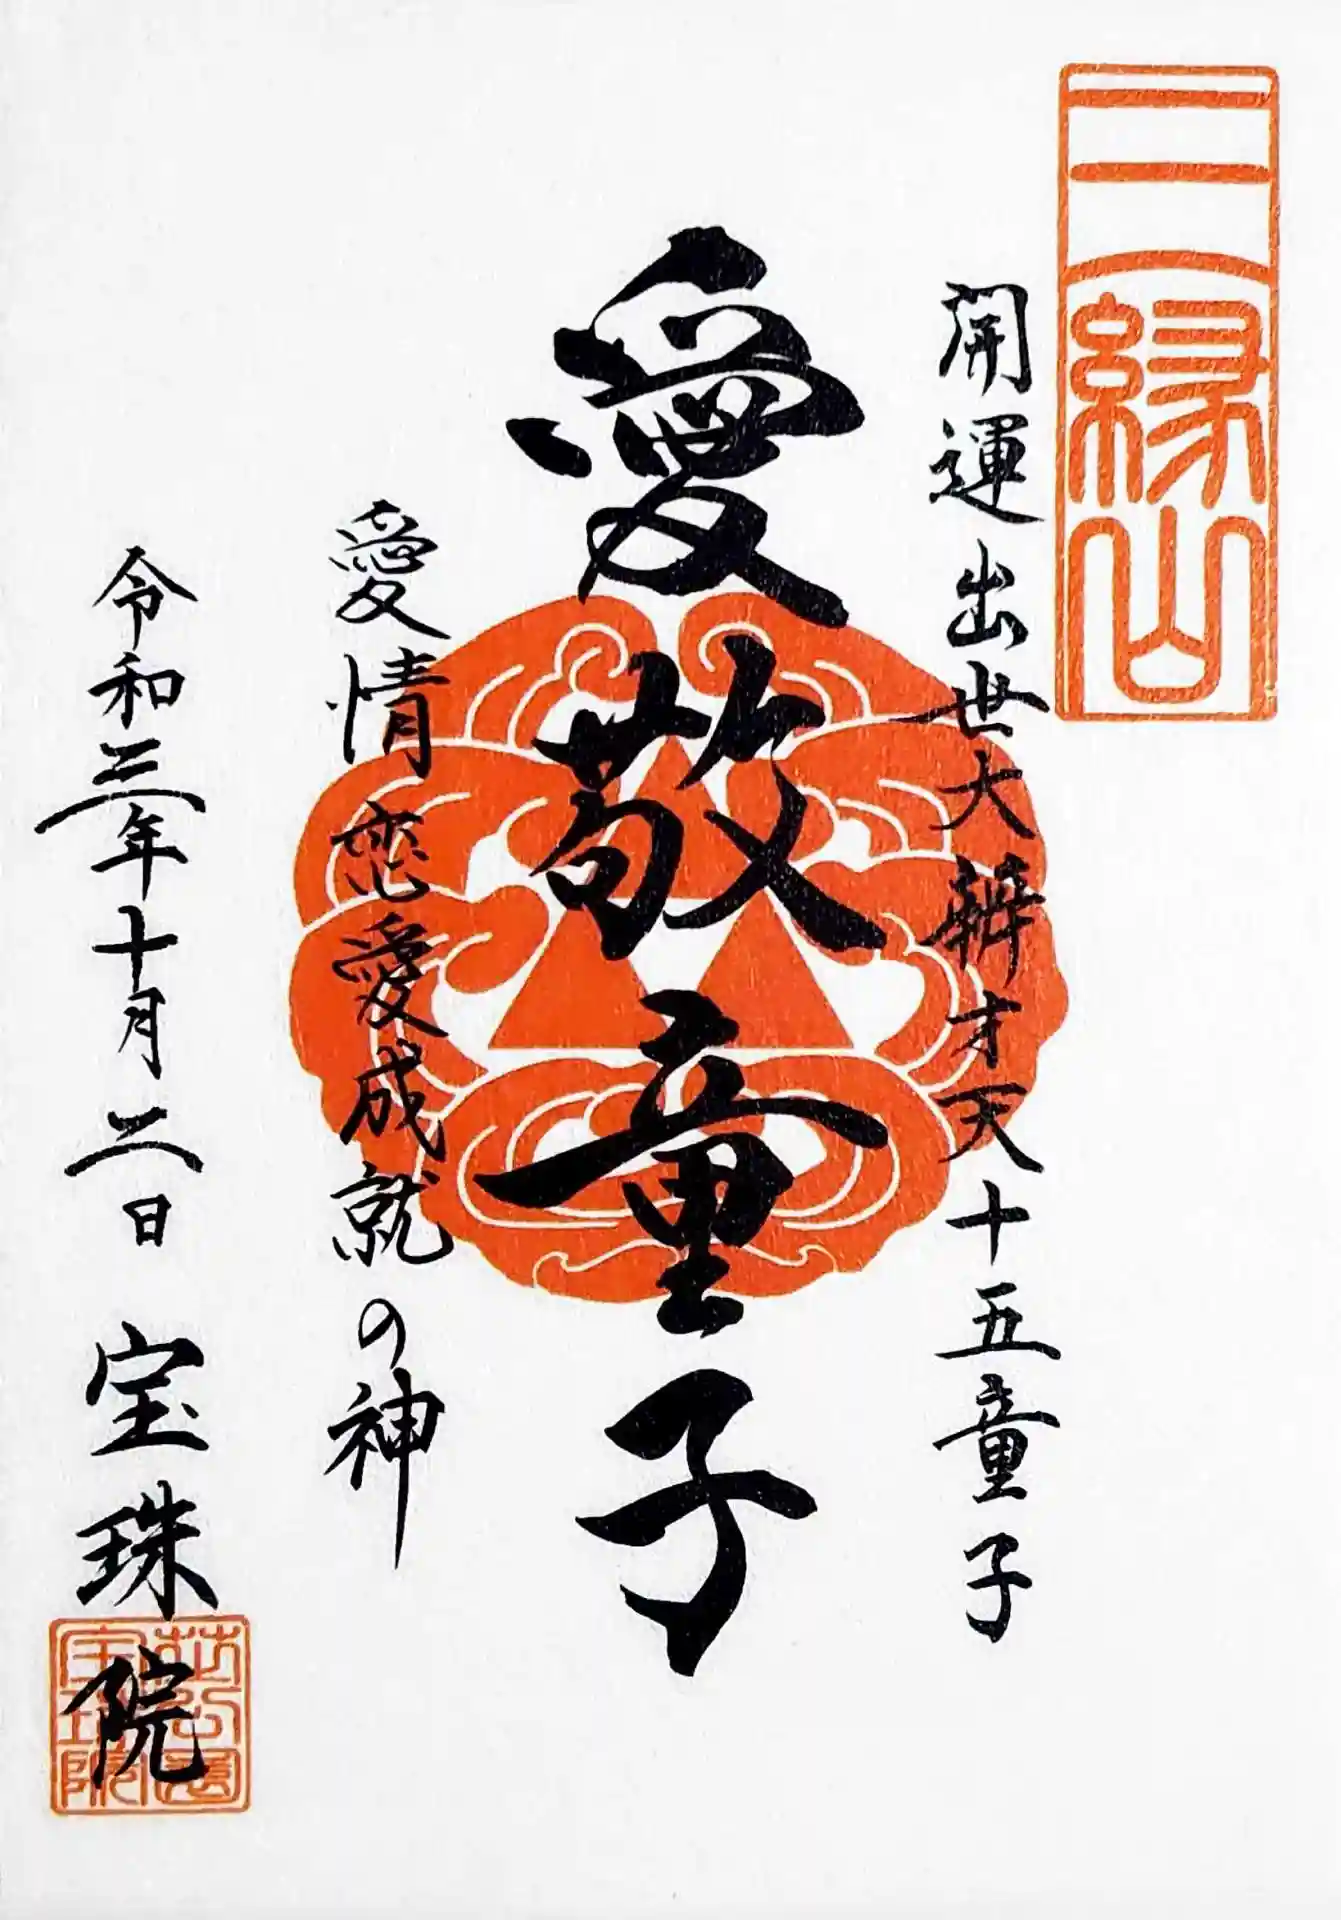 三縁山
開運出世大辨才天十五童子
愛敬童子
愛情恋愛成就の神
令和三年十月二日 宝珠院
芝公園
宝珠院